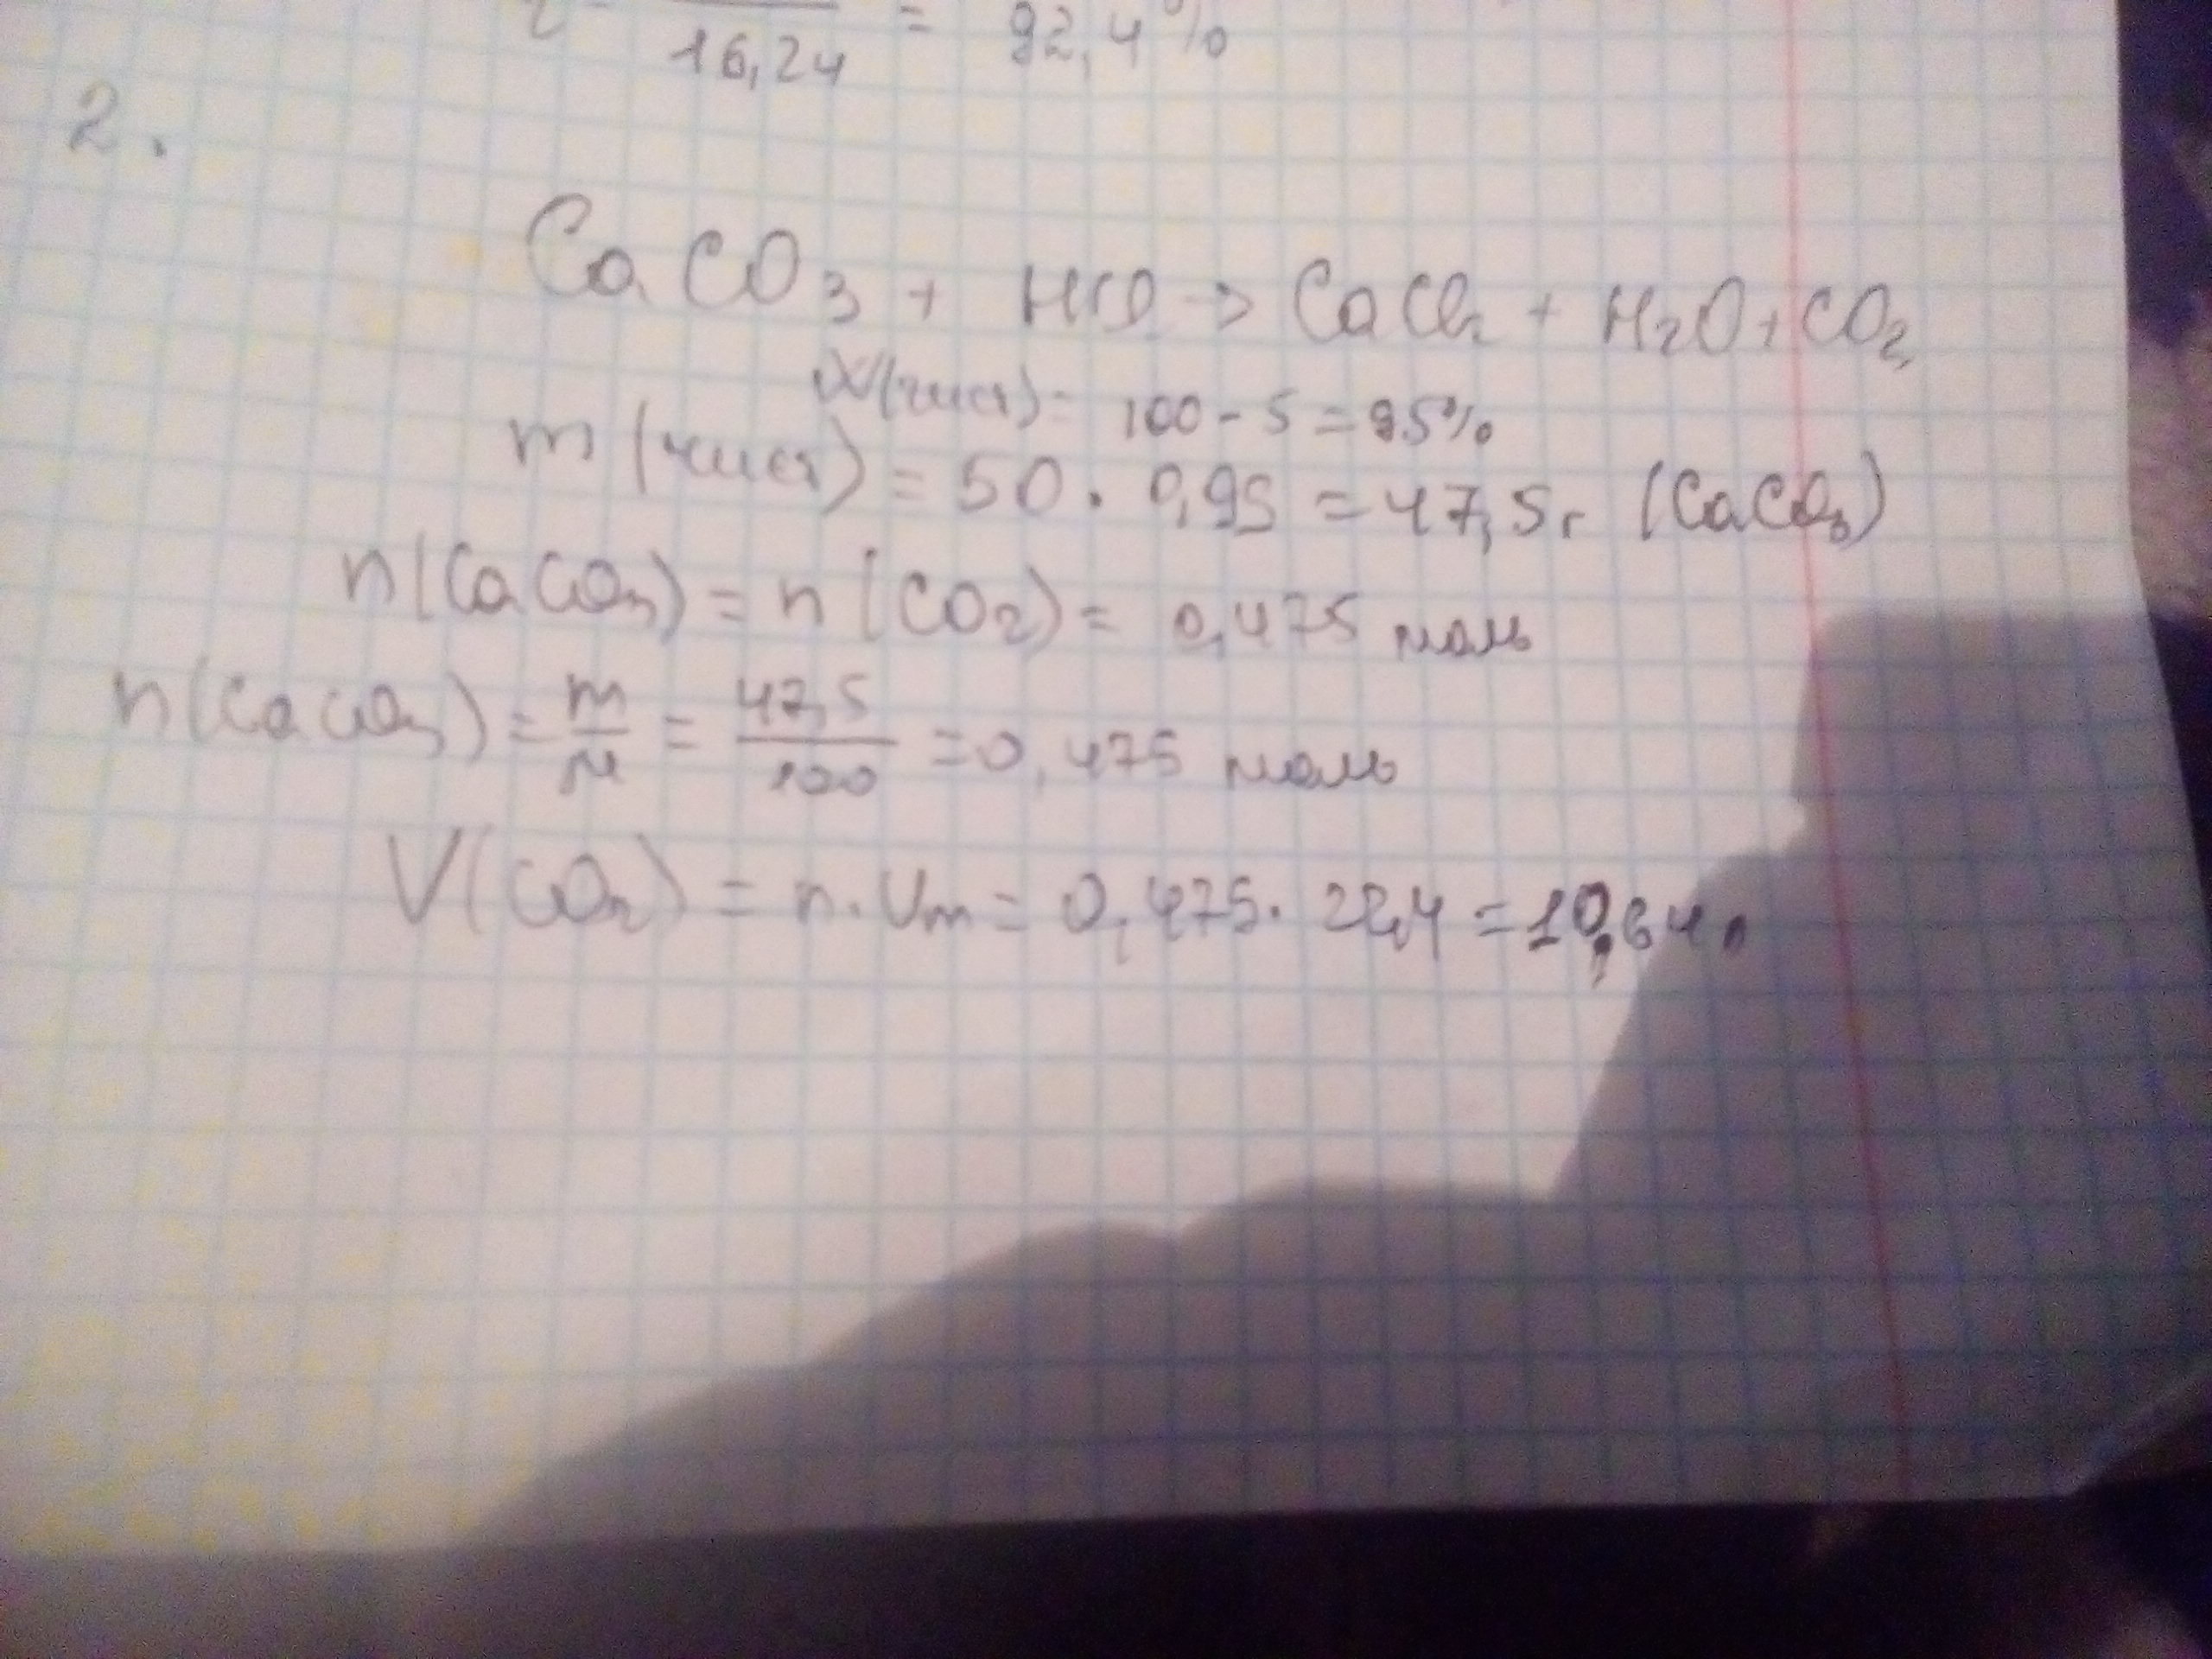 16,24 = 92,4%
2.
CaCO3 + HCl → CaCl2 + H2O + CO2
W(чист) = 100 - 5 = 95%
m(чист) = 50 · 0,95 = 47,5г (CaCO3)
n(CaCO3) = n(CO2) = 0,475 моль
n(CaCO3) = m/M = 47,5/100 = 0,475 моль
V(CO2) = n · Vm = 0,475 · 22,4 = 10,64л